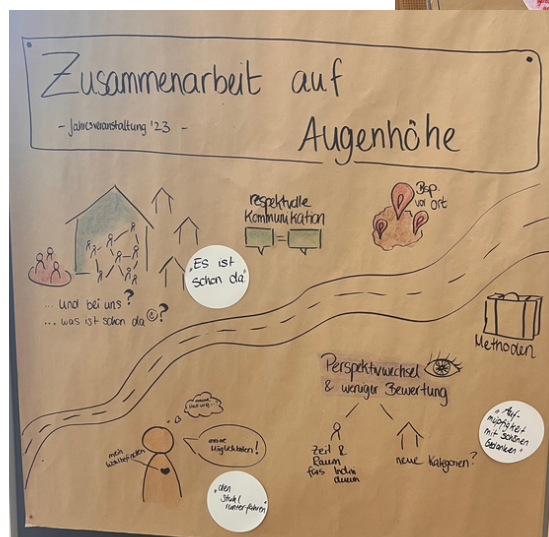 Zusammenarbeit auf
Augenhöhe
- Jahresveranstaltung '23 -
respektvolle
Kommunikation
=
Bsp.
vor Ort
"Es ist
schon da"
... und bei uns?
... was ist schon da ?
Methoden
Perspektivwechsel
& weniger Bewertung
Zeit &
Raum
fürs Indivi
duum
neue Kategorien?
"Auf-
müpfigkeit
mit schönen
Gedanken"
meine
meine
Möglichkeiten!
mein
Wohlbefinden
"den
Stuhl
runterfahren"